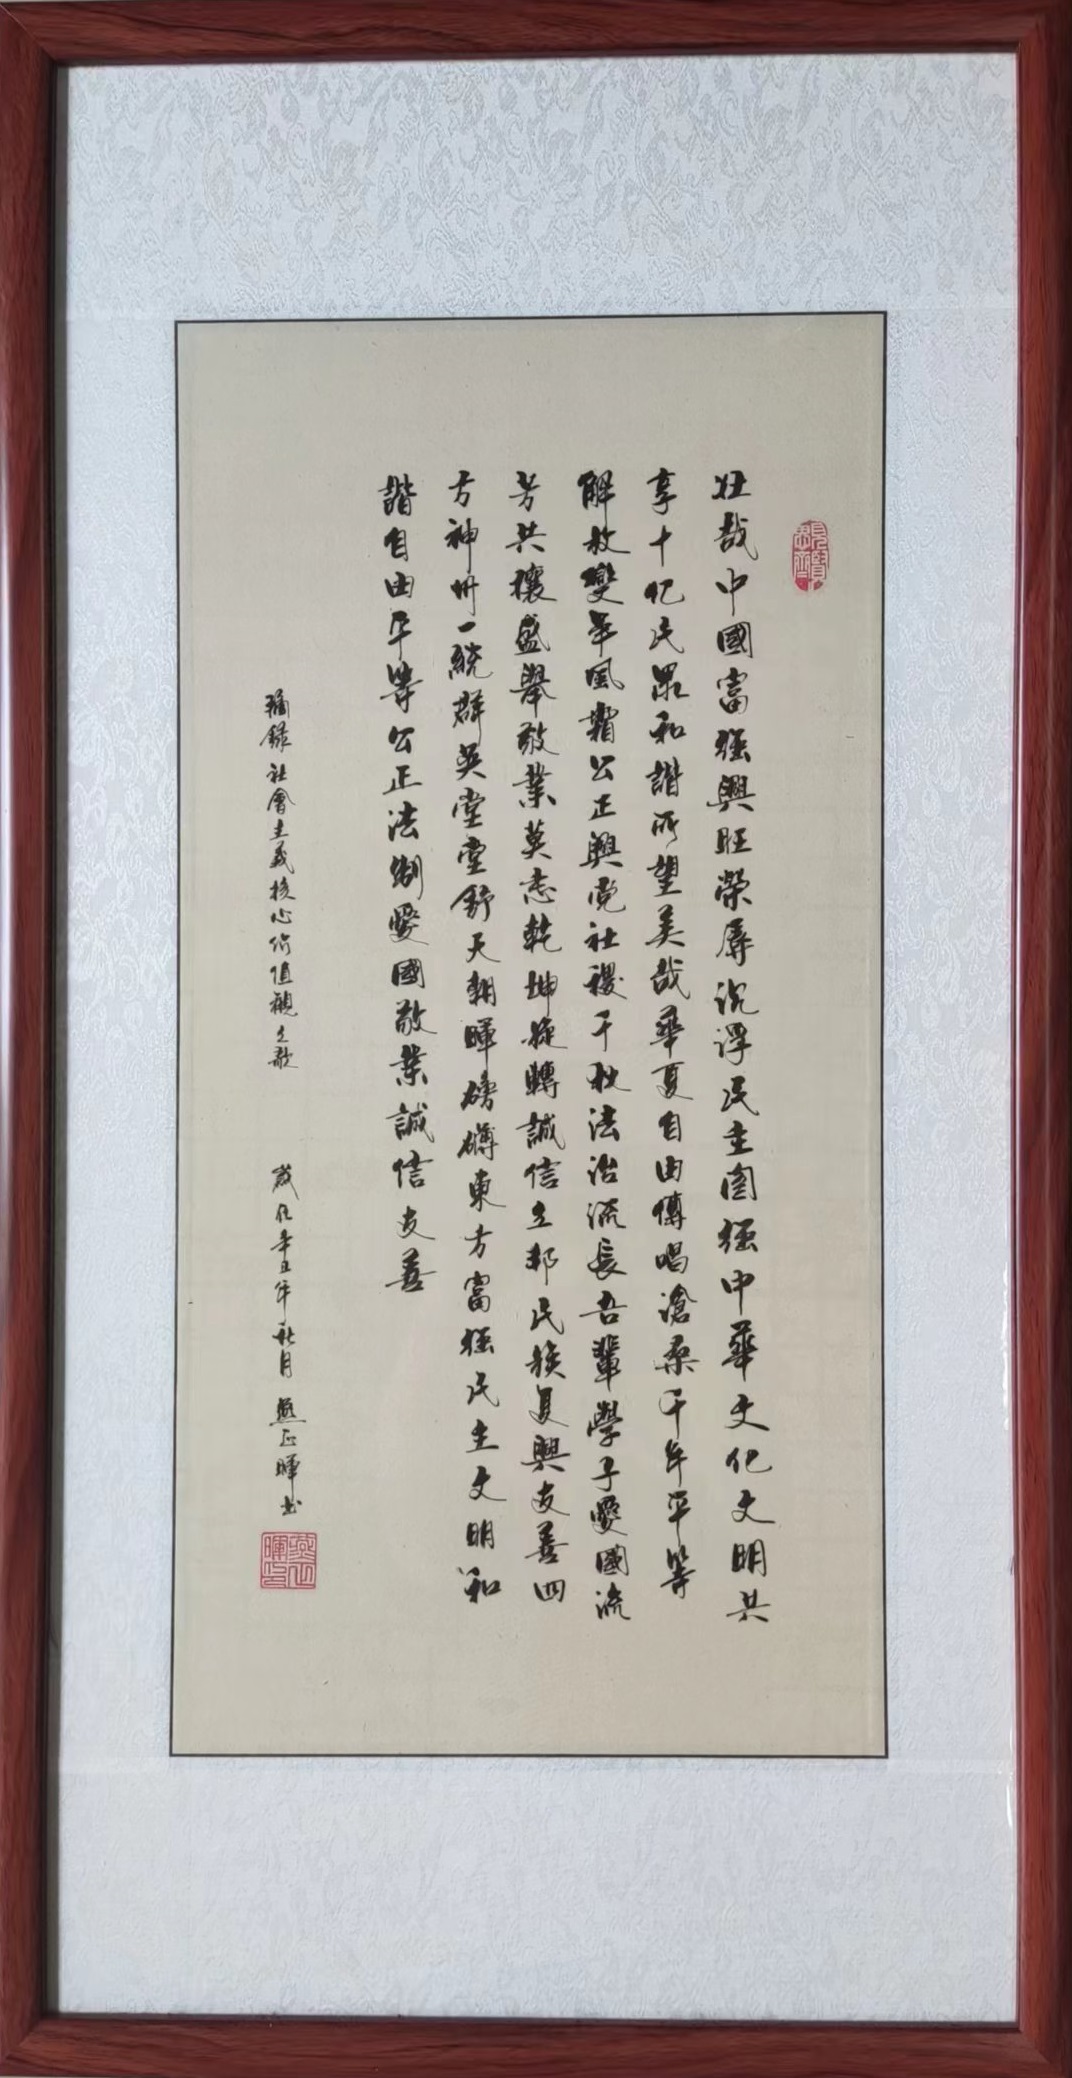 壯哉中國富強興旺榮辱沉浮民主圖強中華文化文明共
享十化民眾和諧所望美哉華夏自由傳唱滄桑千年平等
解放變革風霜公正興党社稷千秋法治流長吾輩學子愛國流
芳共襄盛舉敬業莫忘乾坤旋轉誠信立邦民族复興友善四
方神州一統群英堂堂舒天朝暉磅礴東方富強民主文明和
諧自由平等公正法制愛國敬業誠信友善
摘錄社會主義核心價值觀之歌
歲在辛丑年秋月 燕正暉书
見賢思齊